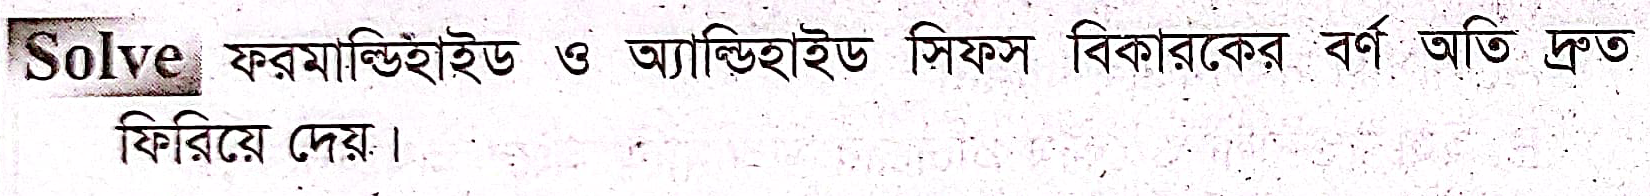 Solve ফরমাল্ডিহাইড ও অ্যাল্ডিহাইড সিফস বিকারকের বর্ণ অতি দ্রুত
ফিরিয়ে দেয়।